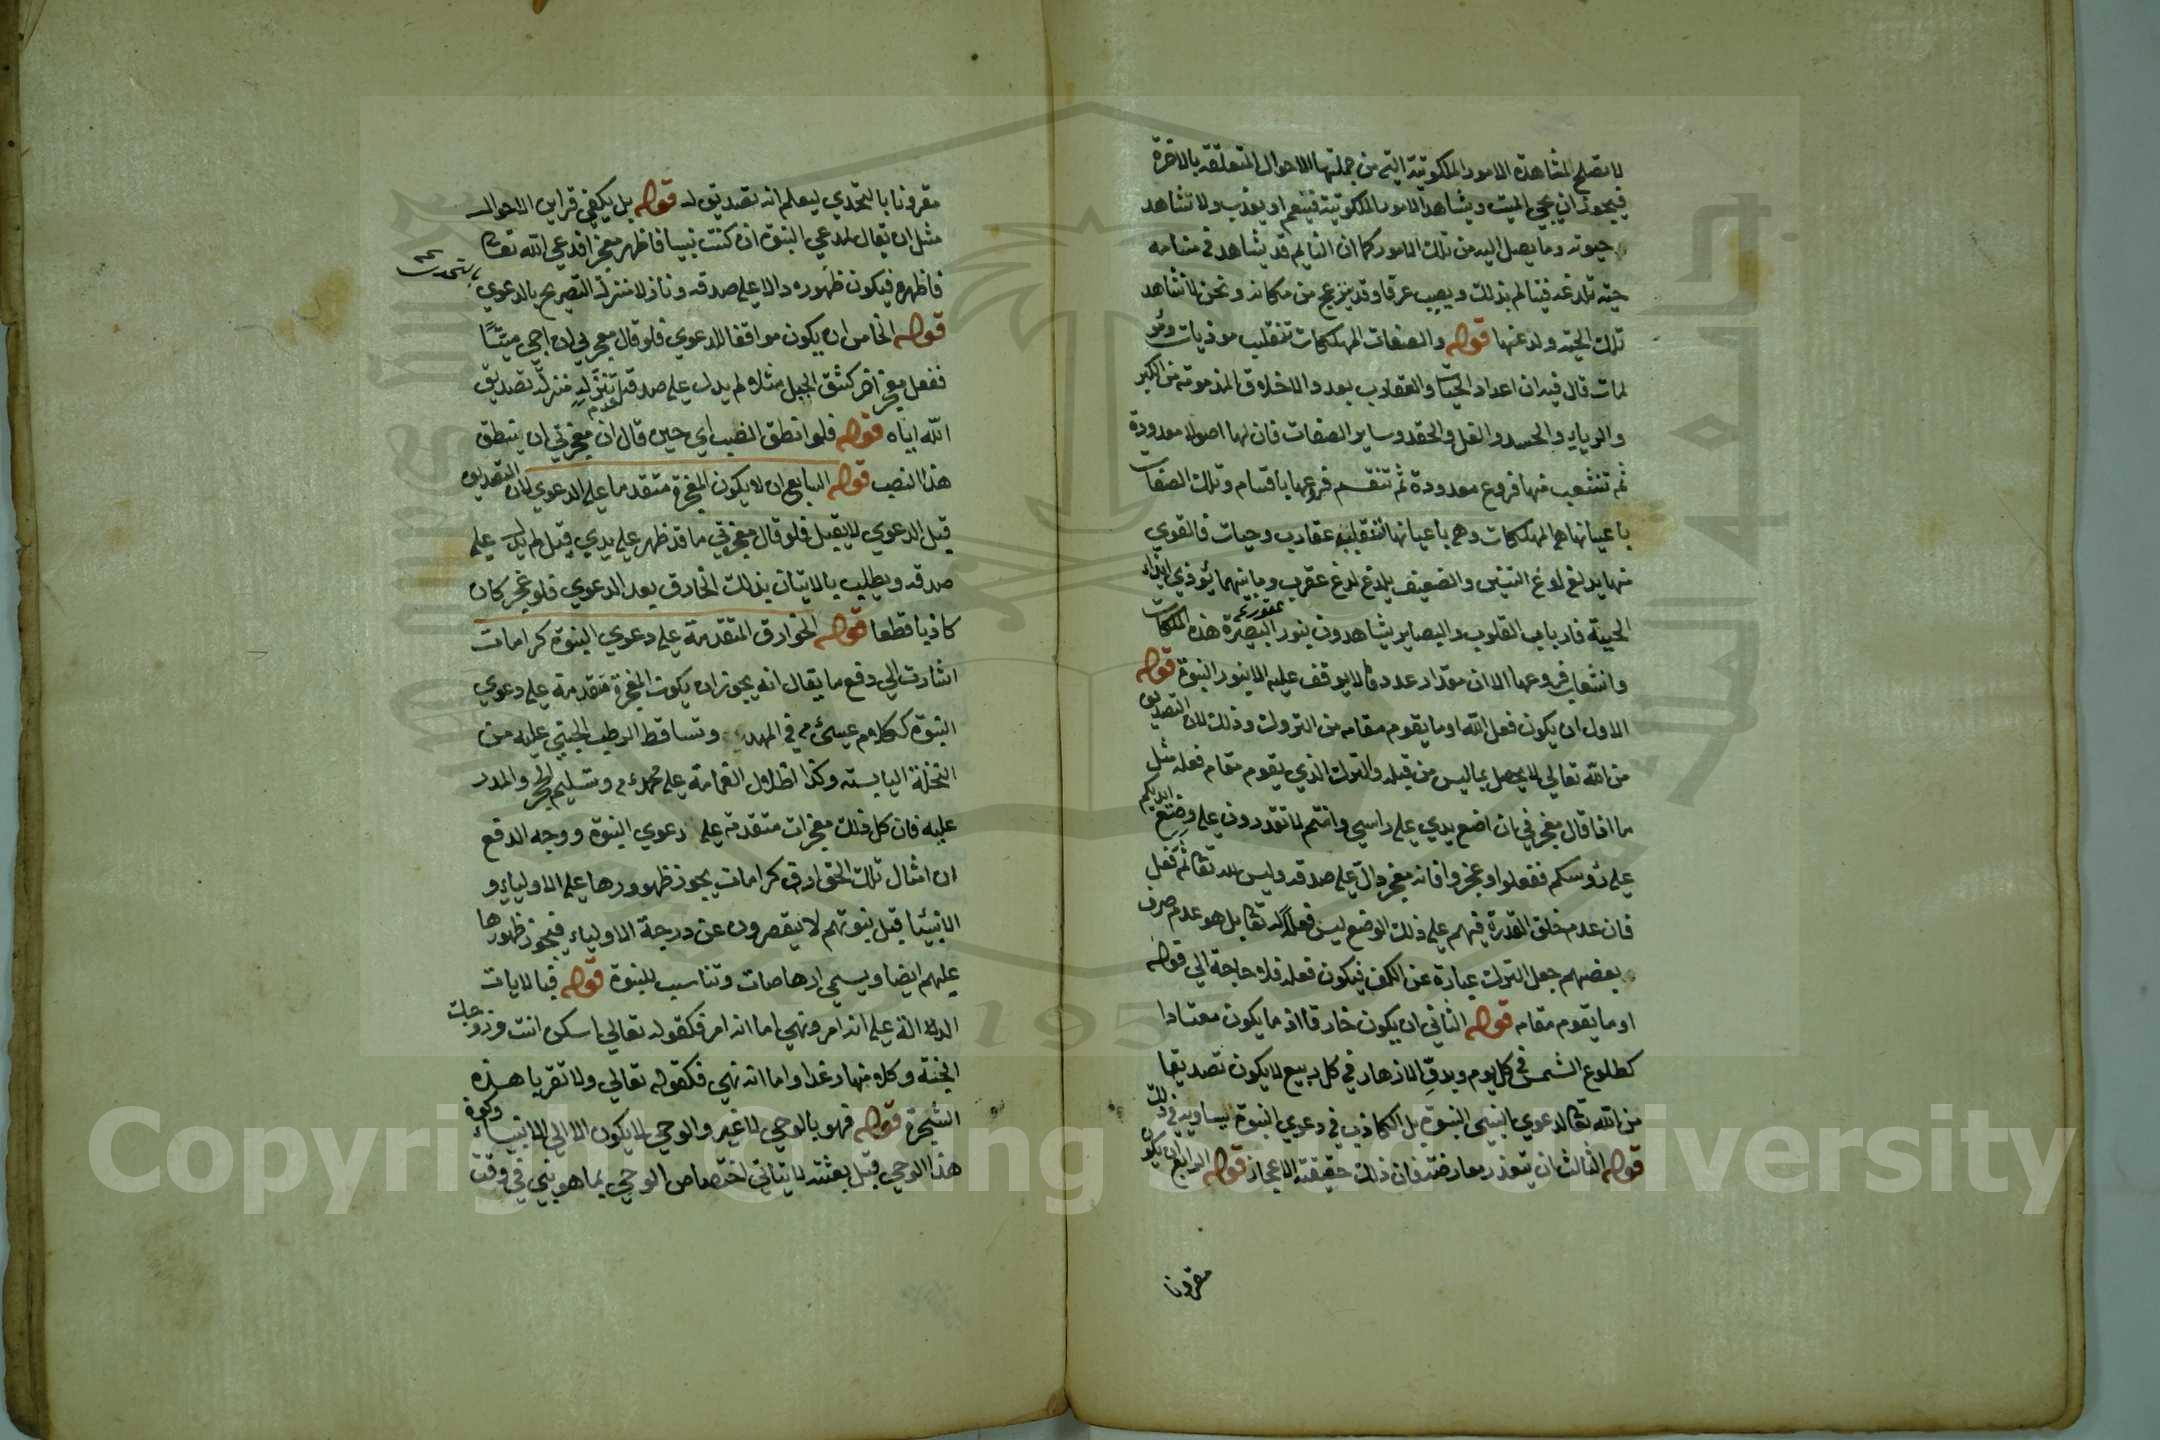 لا تصلح لمشاهدة الامور الملكوتية التي من جملتها الاحوال المتعلقة بالاخرة
فيجوز ان يحيى الميت ويشاهد الامور الملكوتية فينعم او يعذب ولا تشاهد
حيوته وما يصل اليه من تلك الامور كما ان النايم قد يشاهد في منامه
حية تلدغه فيتالم بذلك ويصيب عرقا وقد ينزعج من مكانه ونحن لا نشاهد
تلك الحية ولدغتها قوله والصفات المهلكات تنقلب موذيات ومو
لمات قال فيه ان اعداد الحيات والعقارب بعدد الاخلاق المذمومة من الكبر
والرياء والحسد والغل والحقد وساير الصفات فان لها اصولا معدودة
ثم تتشعب منها فروع معدودة ثم تنقسم فروعها باقسام وتلك الصفات
باعيانها هي المهلكات وهي باعيانها تنقلب عقارب وحيات فالقوي
منها يلدغ لدغ التنين والضعيف يلدغ لدغ عقرب وما بينهما يؤذي ايذاء
الحية فارباب القلوب والبصاير يشاهدون بنور البصيرة هذه المهلكات
وانشعاب فروعها الا ان مقدار عددها لا يوقف عليه الا بنور النبوة قوله
الاول ان يكون فعل الله او ما يقوم مقامه من التروك وذلك لان التصديق
من الله تعالى لا يحصل بما ليس من قبله والترك الذي يقوم مقام فعله مثل
ما اذا قال معجزتي ان اضع يدي على راسي وانتم لا تقدرون على وضع ايديكم
على رؤسكم ففعلوا وعجزوا فانه معجز دال على صدقه وليس لله تعا ثم فعل
فان عدم خلق القدرة فيهم على ذلك الوضع ليس فعلا لله تعا بل هو عدم صرف
بعضهم جعل الترك عبارة عن الكف فيكون فعله فلا حاجة الى قوله
او ما يقوم مقامه قوله الثاني ان يكون خارقا اذ ما يكون معتادا
كطلوع الشمس في كل يوم وبدو الازهار في كل ربيع لا يكون تصديقا
من الله تعا لدعوي النبي النبوة بل الكاذب في دعوي النبوة يساويه في ذلك
قوله الثالث ان يتعذر معارضته فان ذلك حقيقة الاعجاز قوله الرابع ان يكون
مقرونا
مقرونا بالتحدي ليعلم انه تصديق له قوله بل يكفي قراين الاحوال
مثل ان يقال لمدعي النبوة ان كنت نبيا فاظهر معجزا فدعي الله تعا
فاظهره فيكون ظهوره دالا على صدقه ونازلا منزلة التصريح بالدعوي
بالتحدي
قوله الخامس ان يكون موافقا للدعوي فلو قال معجزتي ان احيي ميتا
ففعل معجزا اخر كشق الجبل مثلا لم يدل على صدقه لعدم تنزله منزلة تصديق
الله اياه قوله فلو انطق الضب اي حين قال ان معجزتي ان ينطق
هذا الضب قوله السابع ان لا يكون المعجزة متقدما على الدعوي لان التصديق
قبل الدعوي لا يقبل فلو قال معجزتي ما قد ظهر على يدي قبل لم يدل على
صدقه ويطلب بالاتيان بذلك الخارق بعد الدعوي فلو عجز كان
كاذبا قطعا قوله الخوارق المتقدمة على دعوي النبوة كرامات
اشارت الى دفع ما يقال انه يجوز ان يكون المعجزة متقدمة على دعوي
النبوة ككلام عيسى م في المهد وتساقط الرطب الجني عليه من
النخلة اليابسة وكذا اظلال الغمامة على محمد ء م وتسليم الحجر والمدر
عليه فان كل ذلك معجزات متقدمة على دعوي النبوة ووجه الدفع
ان امثال تلك الخوارق كرامات يجوز ظهورها على الاولياء و
الانبياء قبل نبوتهم لا يقصرون عن درجة الاولياء فيجوز ظهورها
عليهم ايضا ويسمى ارهاصات وتناسب للنبوة قوله فبالايات
الدالة على انه امر ونهي اما انه امر فكقوله تعالى اسكن انت وزوجك
الجنة وكلا منها رغدا واما انه نهي فكقوله تعالى ولا تقربا هذه
الشجرة قوله فهو بالوحي لا غير والوحي لا يكون الا الى الانبياء وكون
هذا الوحي قبل بعثته لا ينافي اختصاص الوحي بما هو نبي في وقت
Copyright © King Saud University
1957